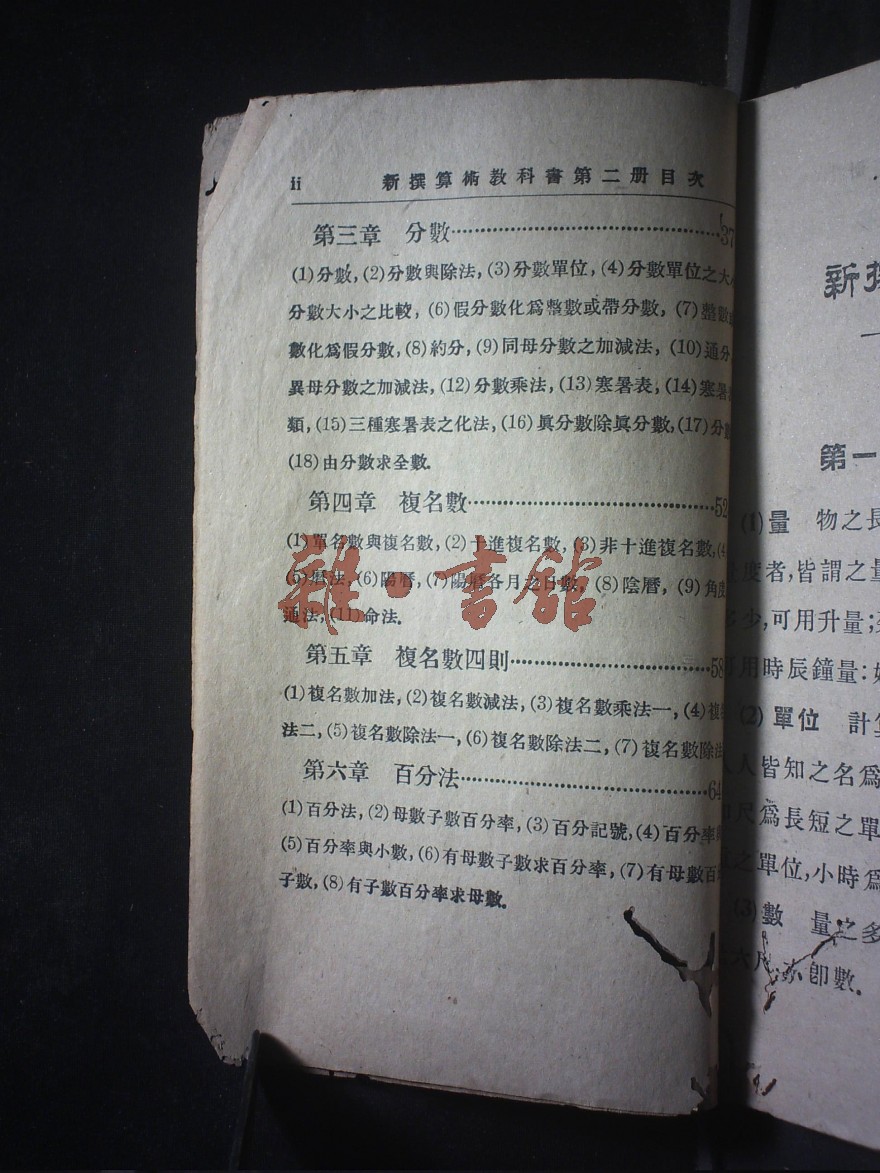 ii 新撰算術教科書第二册目次
第三章 分數……………………………37
(1)分數,(2)分數與除法,(3)分數單位,(4)分數單位之大
分數大小之比較,(6)假分數化爲整數或帶分數,(7)整數
數化爲假分數,(8)約分,(9)同母分數之加減法,(10)通分
異母分數之加減法,(12)分數乘法,(13)寒暑表,(14)寒暑
類,(15)三種寒暑表之化法,(16)眞分數除眞分數,(17)分
(18)由分數求全數.
第四章 複名數……………………………52
(1)單名數與複名數,(2)十進複名數,(3)非十進複名數,(4
(5)曆法,(6)陽曆,(7)陽曆各月之日數,(8)陰曆,(9)角度
通法,(11)命法.
第五章 複名數四則……………………………58
(1)複名數加法,(2)複名數減法,(3)複名數乘法一,(4)複
法二,(5)複名數除法一,(6)複名數除法二,(7)複名數除法
第六章 百分法……………………………64
(1)百分法,(2)母數子數百分率,(3)百分記號,(4)百分率
(5)百分率與小數,(6)有母數子數求百分率,(7)有母數百
子數,(8)有子數百分率求母數.
雜·書館
新撰
第一
(1)量 物之長
度者,皆謂之量
多少,可用升量;
用時辰鐘量:如
(2)單位 計算
人皆知之名爲
尺爲長短之單
之單位,小時爲
(3)數 量之多
六尺,亦卽數.